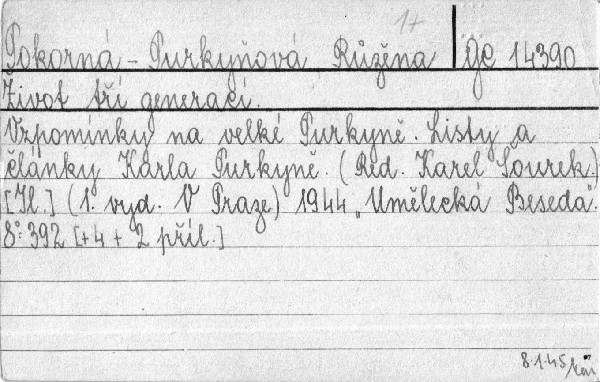 1+
Pokorná - Purkyňová Růžěna Gc 14390
Život tří generací.
Vzpomínky na velké Purkyně. Listy a
články Karla Purkyně. (Red. Karel Šourek.)
[Il.] (1. vyd. V Praze) 1944 „Umělecká Beseda".
8°: 392 [+4 + 2 příl.]
8.1.45